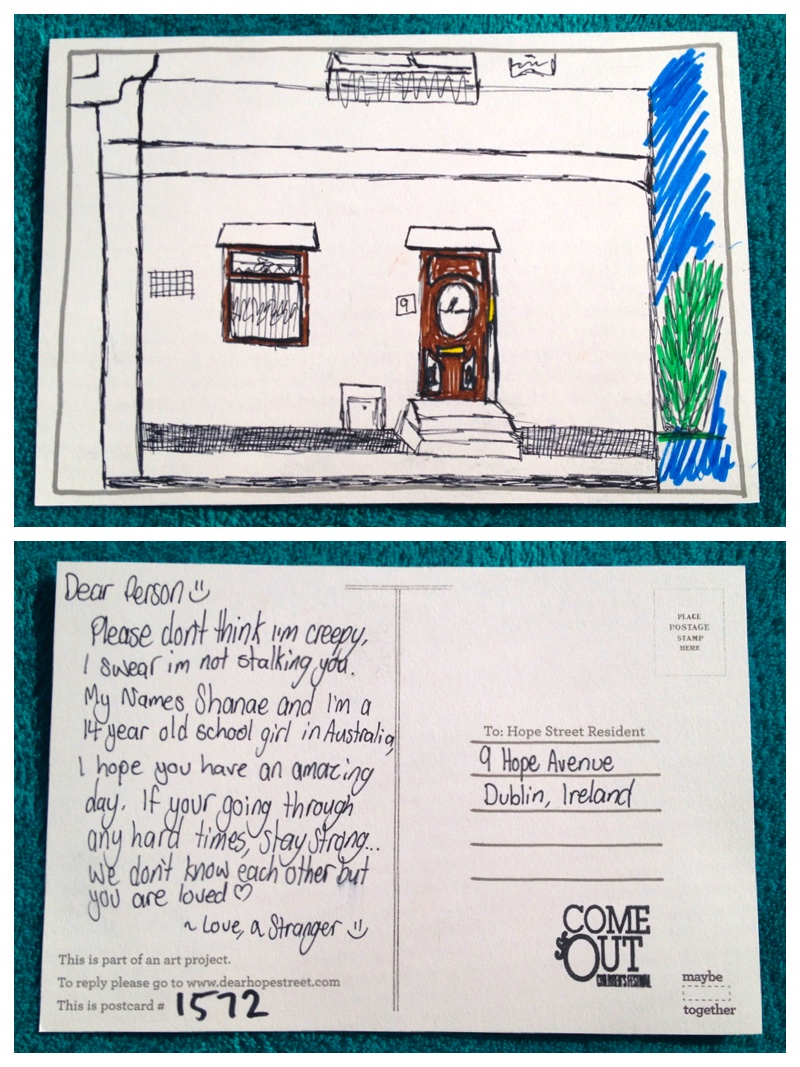 9
Dear Person
Please don't think i'm creepy,
I swear im not stalking you.
My Names Shanae and I'm a
14 year old school girl in Australia,
I hope you have an amazing
day. If your going through
any hard times, stay strong...
we don't know each other but
you are loved ♡
~ Love, a Stranger
This is part of an art project.
To reply please go to www.dearhopestreet.com
This is postcard # 1572
PLACE
POSTAGE
STAMP
HERE
To: Hope Street Resident
9 Hope Avenue
Dublin, Ireland
COME
OUT
CHILDREN'S FESTIVAL
maybe
together